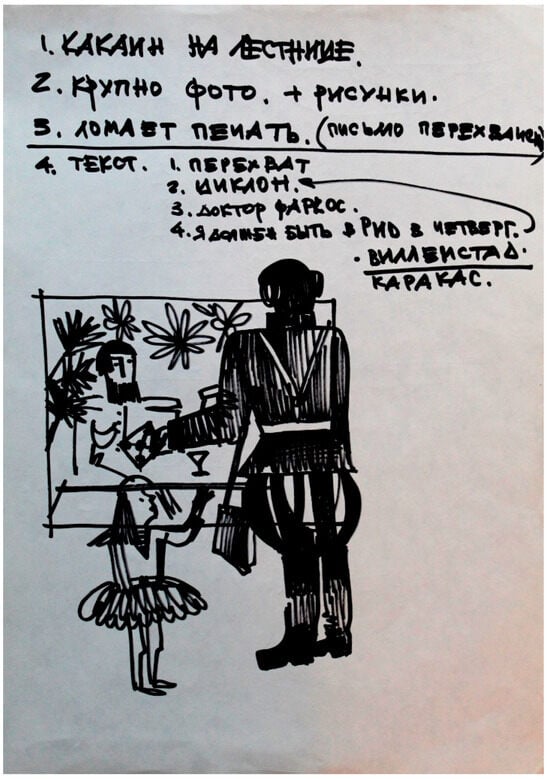 1. КАКАИН НА ЛЕСТНИЦЕ.
2. КРУПНО ФОТО. + РИСУНКИ.
3. ЛОМАЕТ ПЕЧАТЬ. (ПИСЬМО
4. ТЕКСТ. 1. ПЕРЕХВАТ
2. ЦИКЛОН.
3. ДОКТОР ФАРКОС.
4. Я ДОЛЖЕН БЫТЬ В РИО В ЧЕТВЕРГ.
. ВИЛЛЕМСТАД.
КАРАКАС.